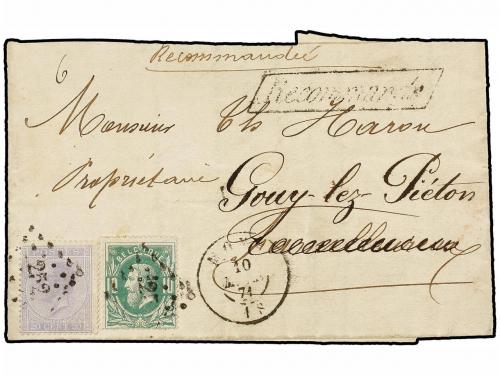 Recommandée
6
Recommandé
Monsieur Ch Haron
Propriétaire Gouy-lez-Piéton
BELGIQUE
10
71
20 CENT. 20